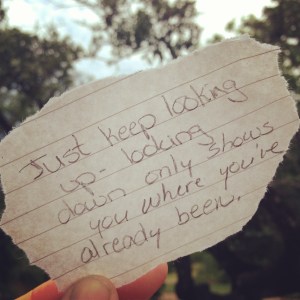 Just keep looking
up- looking
down only shows
you where you've
already been.